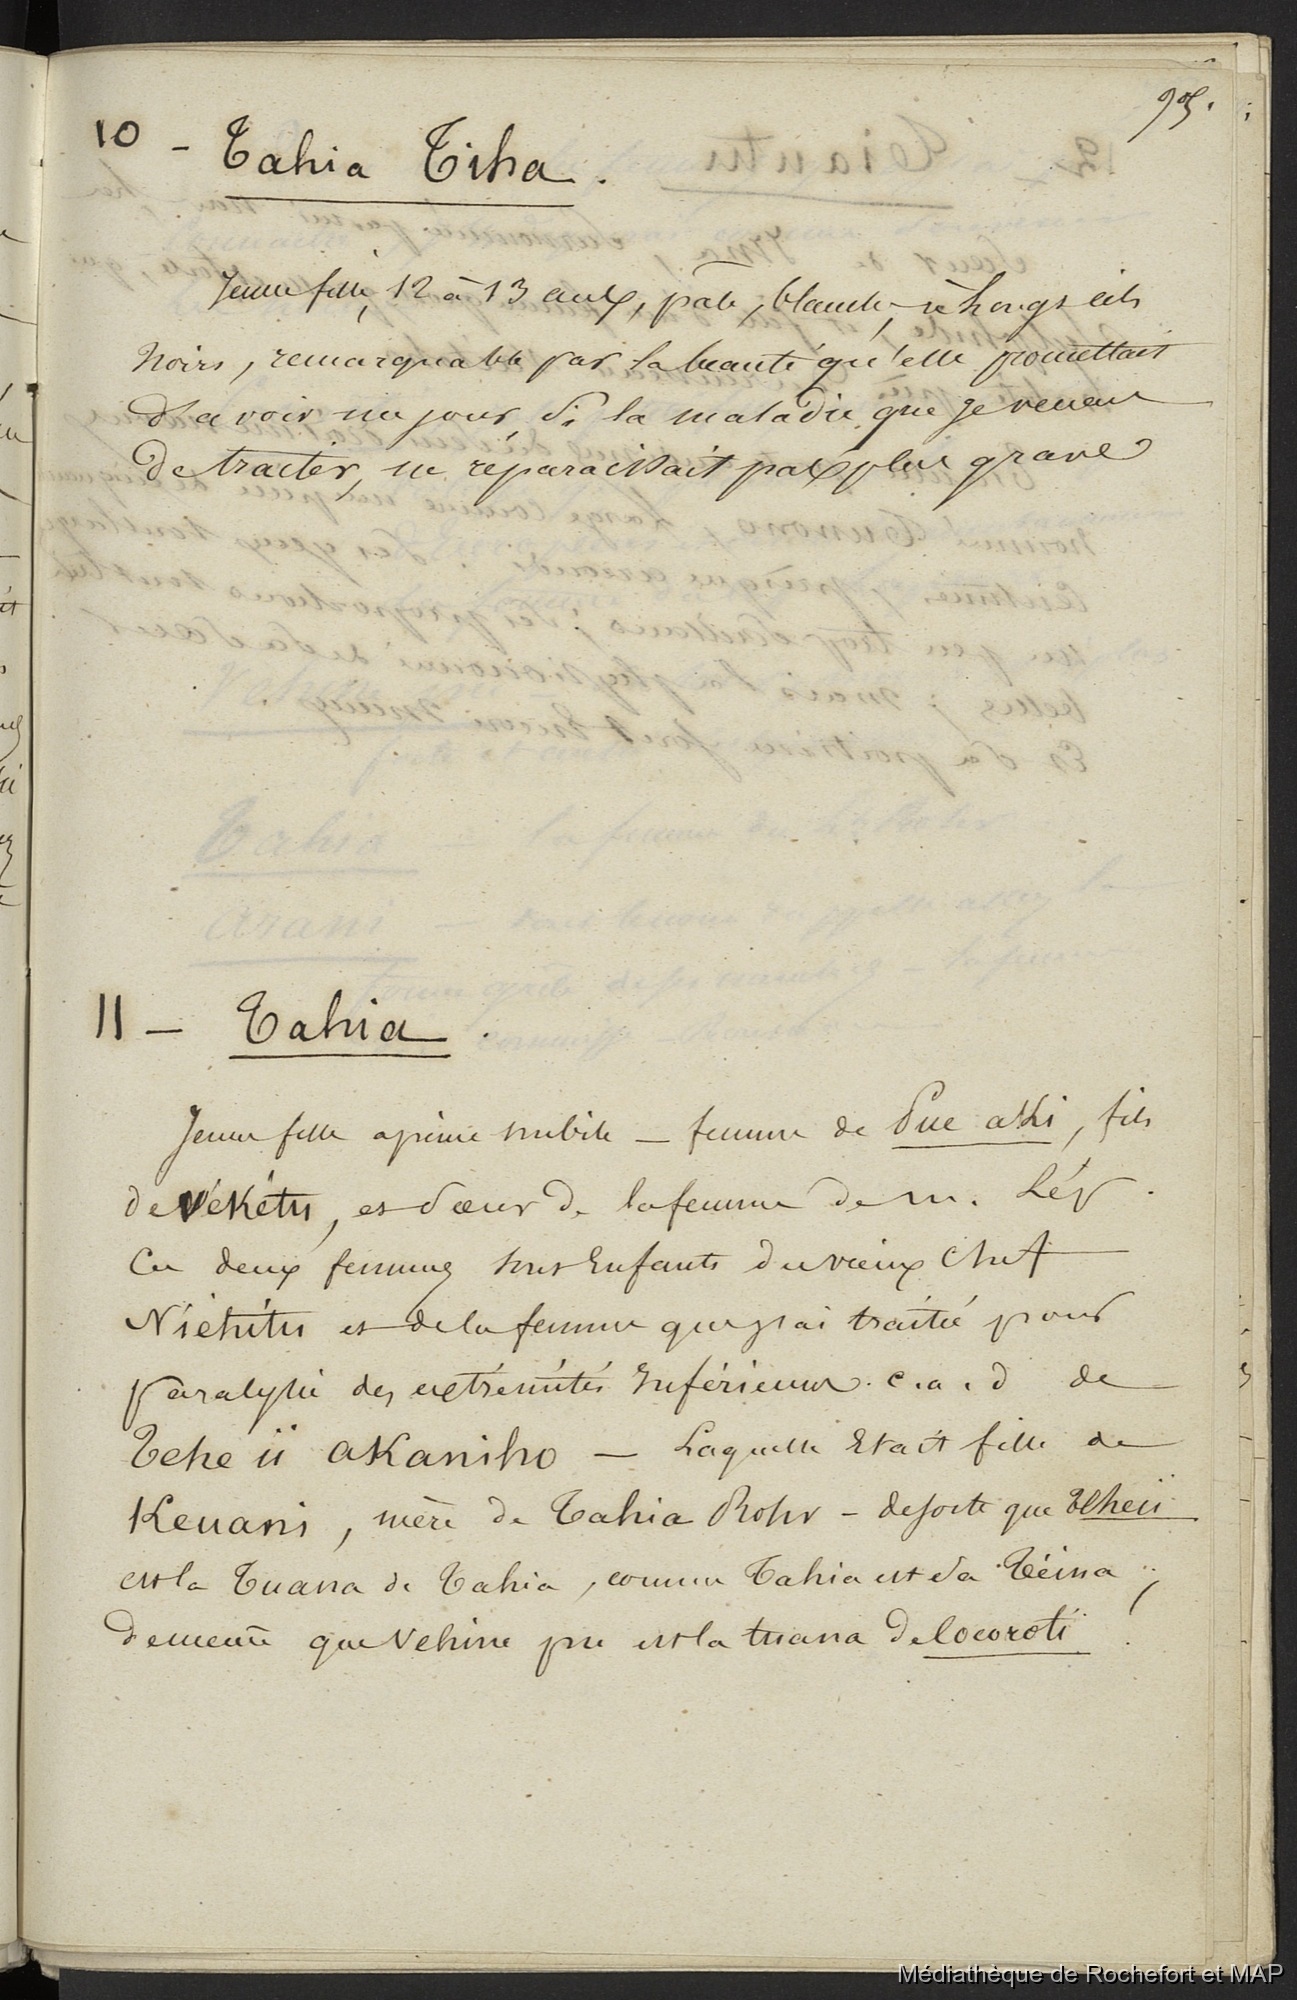 95.
10 - Tahia Tiha.
Jeune fille, 12 à 13 ans, pâle, blanche, à longs cils
noirs, remarquable par la beauté qu'elle promettait
d'avoir un jour, si la maladie que je venais
de traiter, ne réparaissait pas plus grave
11 - Tahia.
Jeune fille à peine nubile - femme de Pue aki, fils
de Vékétu, et sœur de la femme de m. Lég.
Ces deux femmes sont enfants du vieux chef
Niéhitu et de la femme que j'ai traitée pour
paralysie des extrémités inférieures. c.a.d de
Tehe ii akaniho - laquelle était fille de
Keuani, mère de Tahia Rohr - de sorte que Teheii
est la Tuana de Tahia, comme Tahia est sa Teina;
de même que Vehine pu est la tuana de locoroti
Médiathèque de Rochefort et MAP